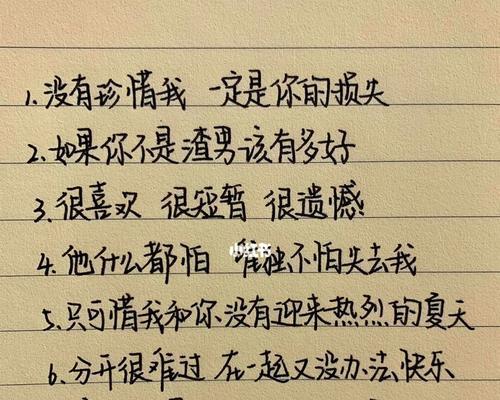 1.没有珍惜我 一定是你的损失
2.如果你不是渣男该有多好
3.很喜欢 很短暂 很遗憾!
小红书
4.他什么都怕 唯独不怕失去我
5.只可惜我和你没有迎来热烈的夏天
6.分开很难过 在一起又没办法快乐